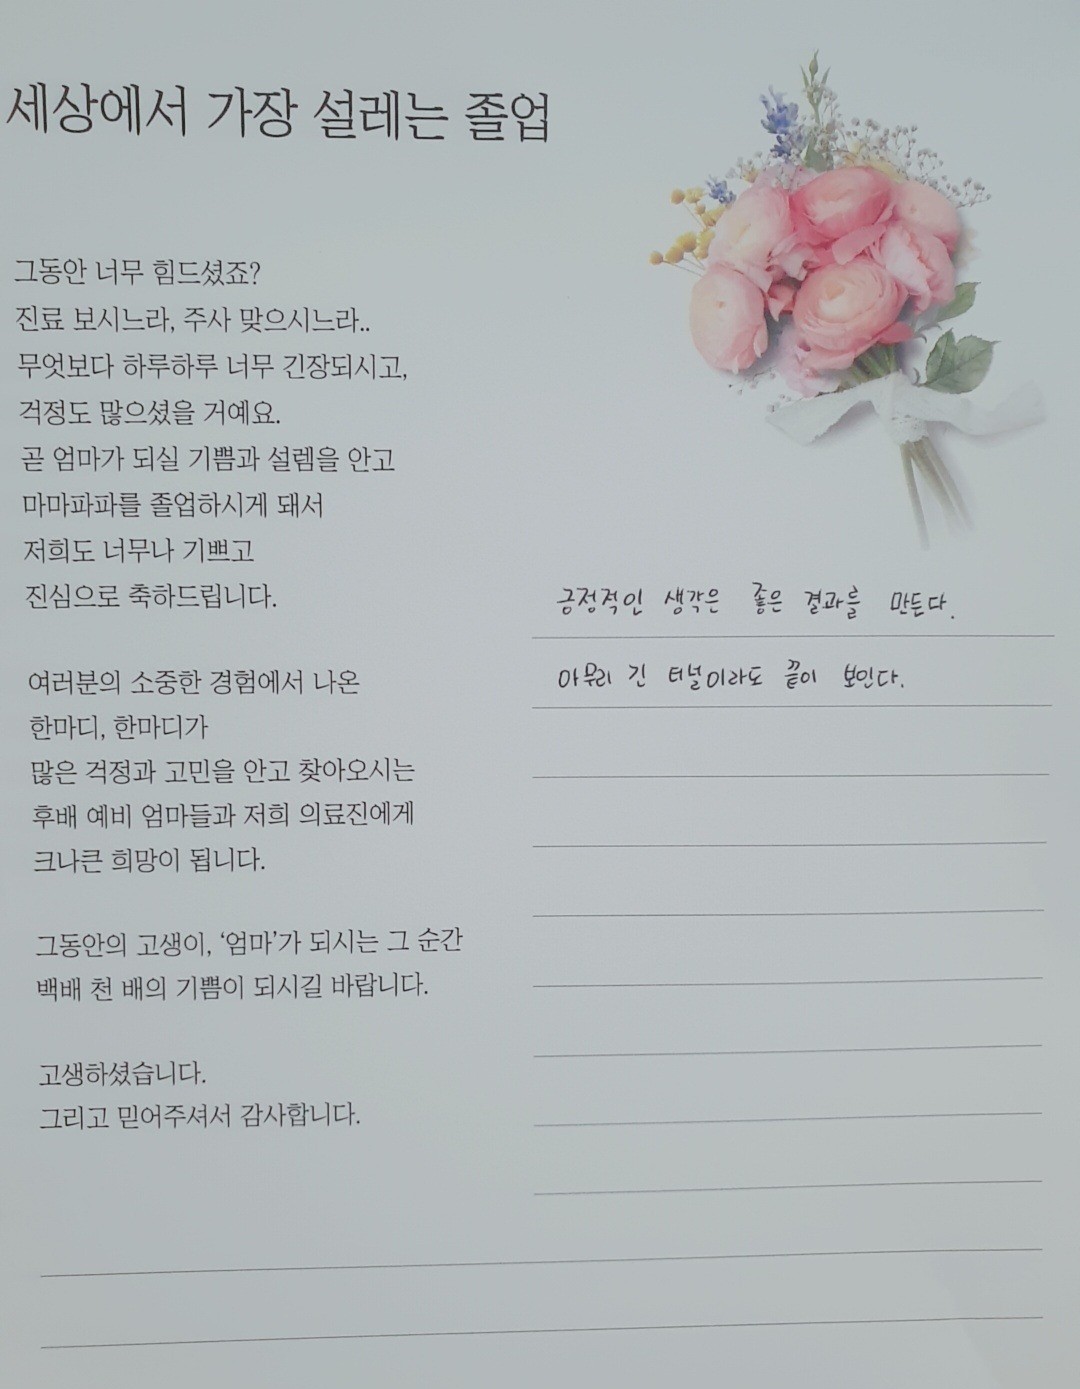 세상에서 가장 설레는 졸업
그동안 너무 힘드셨죠?
진료 보시느라, 주사 맞으시느라..
무엇보다 하루하루 너무 긴장되시고,
걱정도 많으셨을 거예요.
곧 엄마가 되실 기쁨과 설렘을 안고
마마파파를 졸업하시게 돼서
저희도 너무나 기쁘고
진심으로 축하드립니다.
여러분의 소중한 경험에서 나온
한마디, 한마디가
많은 걱정과 고민을 안고 찾아오시는
후배 예비 엄마들과 저희 의료진에게
크나큰 희망이 됩니다.
그동안의 고생이, ‘엄마’가 되시는 그 순간
백배 천 배의 기쁨이 되시길 바랍니다.
고생하셨습니다.
그리고 믿어주셔서 감사합니다.
긍정적인 생각은 좋은 결과를 만든다.
아무리 긴 터널이라도 끝이 보인다.